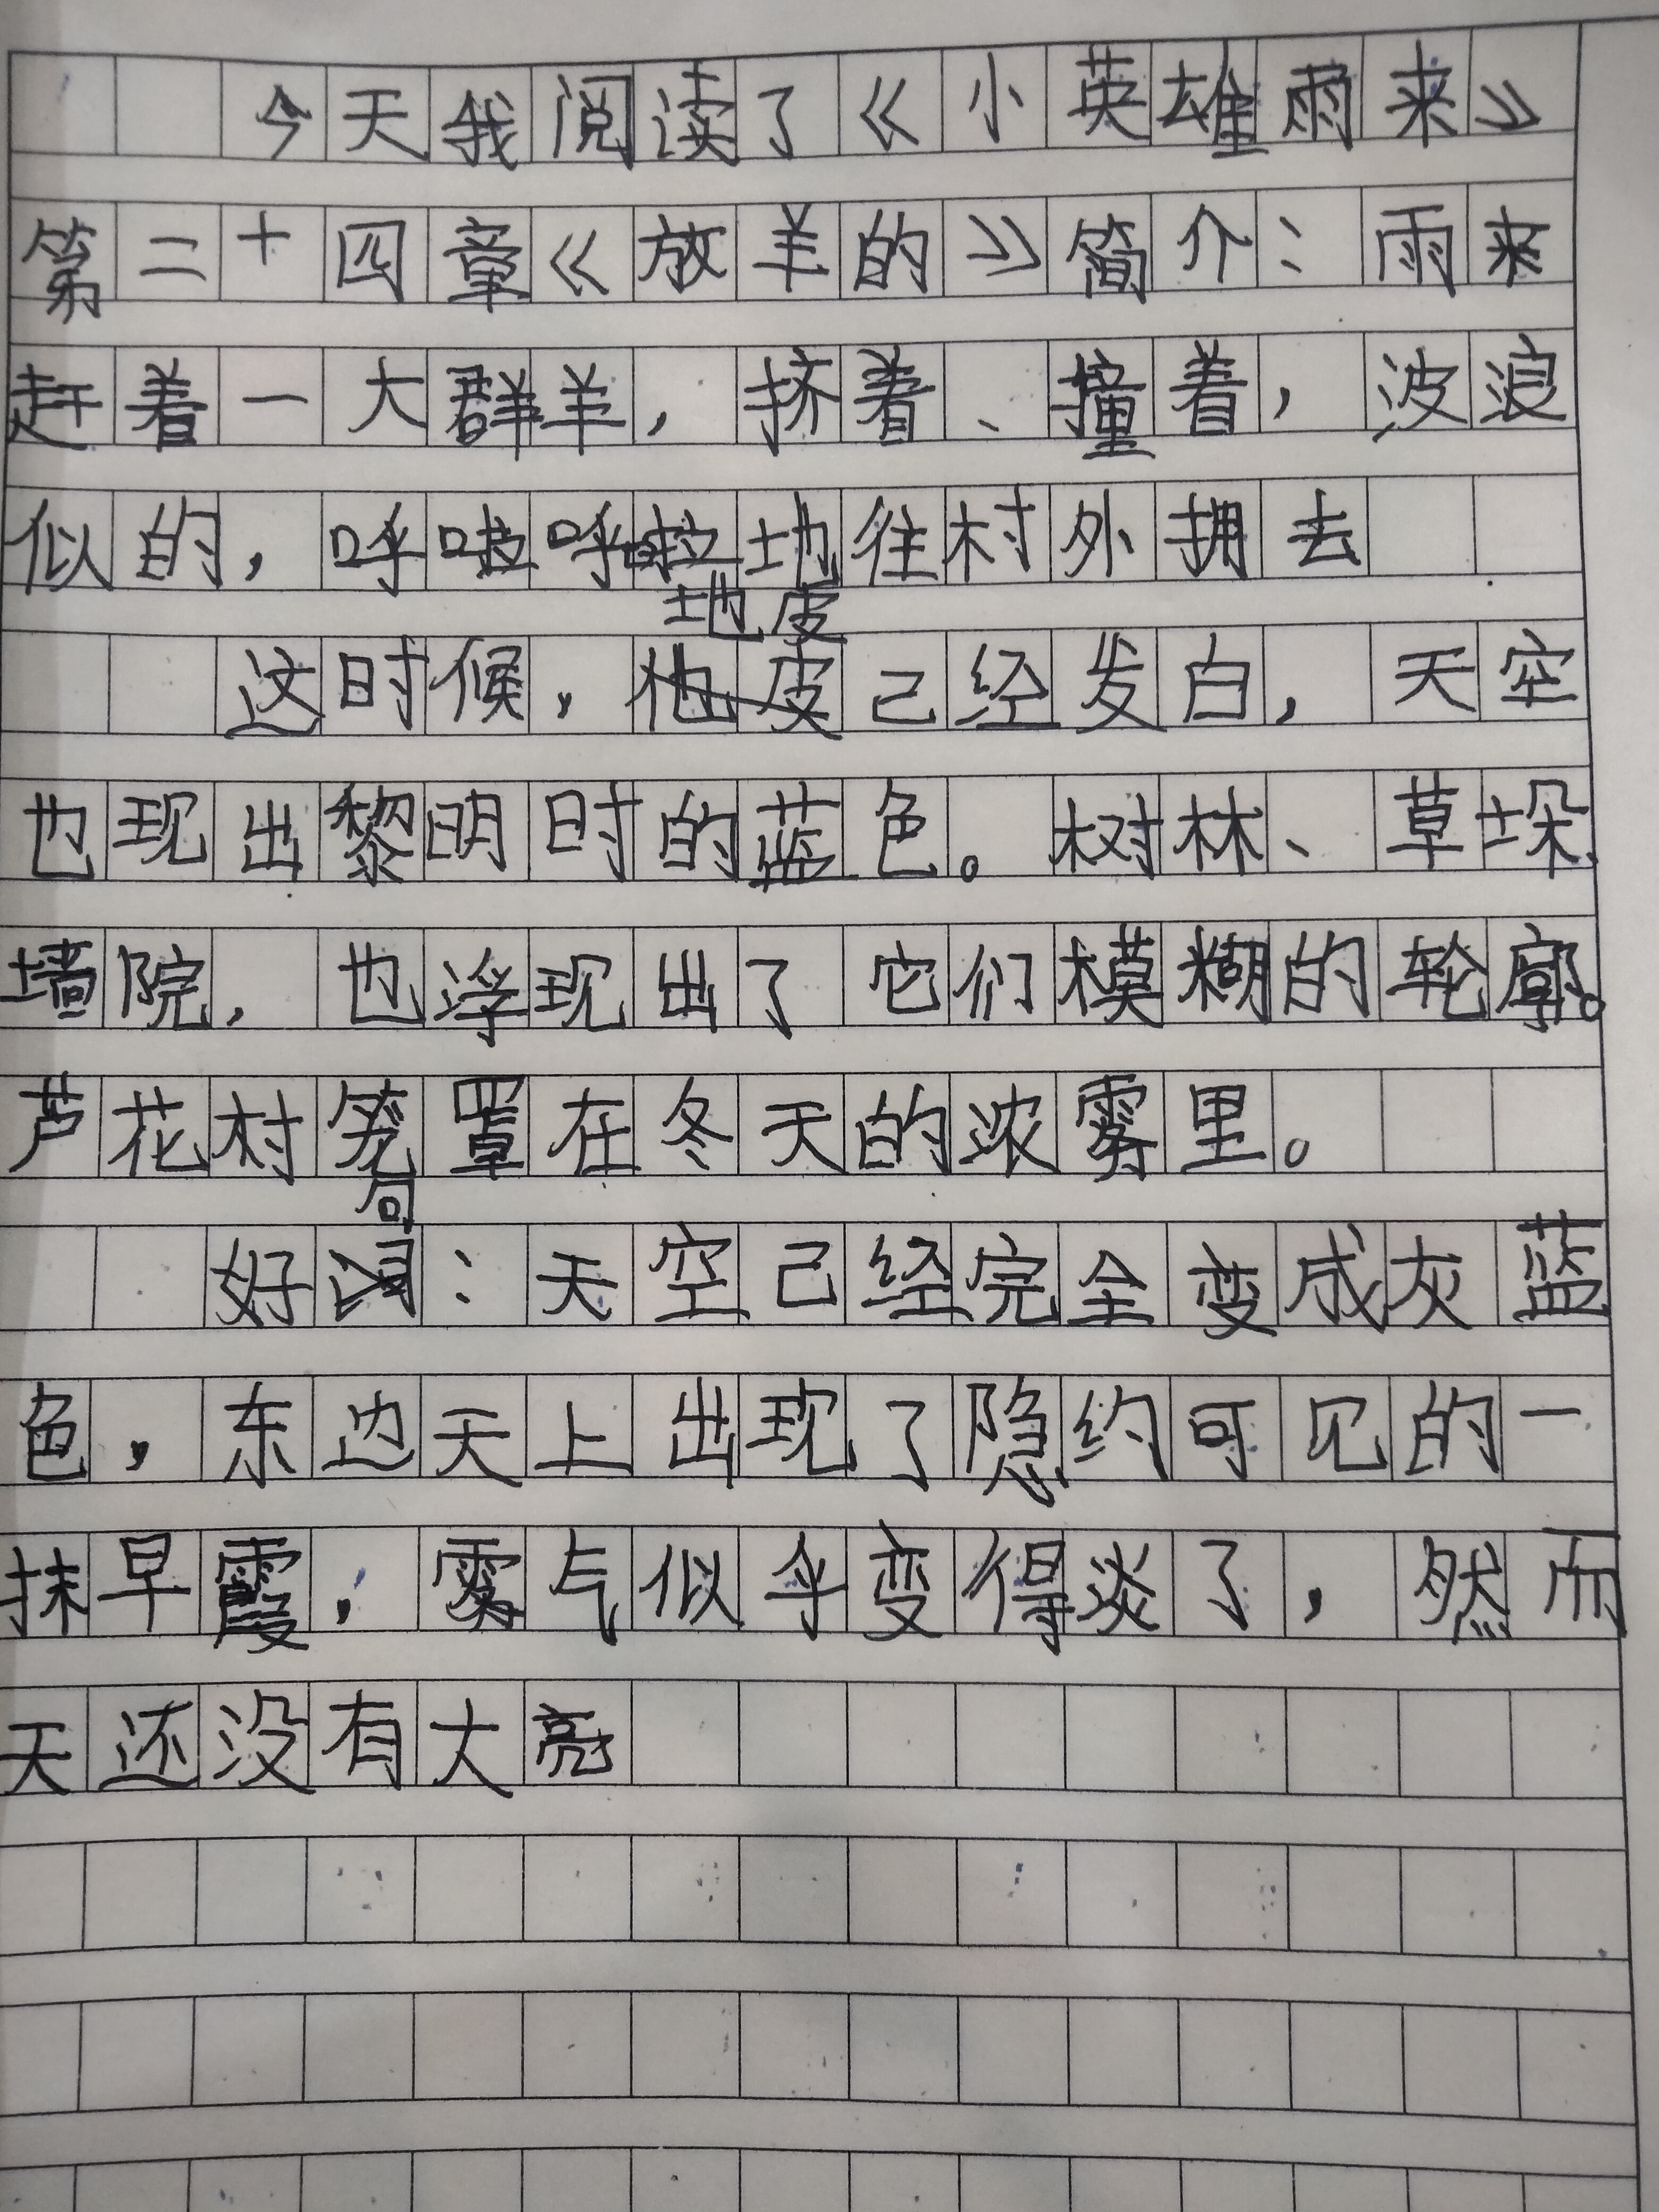 今天我阅读了《小英雄雨来》
第二十四章《放羊的》简介：雨来
赶着一大群羊，挤着、撞着，波浪
似的，呼啦呼啦地往村外拥去
地皮
这时候，他皮己经发白，天空
也现出黎明时的蓝色。树林、草垛、
墙院，也浮现出了它们模糊的轮廓。
芦花村笼罩在冬天的浓雾里。
句
好词：天空己经完全变成灰蓝
色，东边天上出现了隐约可见的一
抹早霞，雾气似乎变得淡了，然而
天还没有大亮